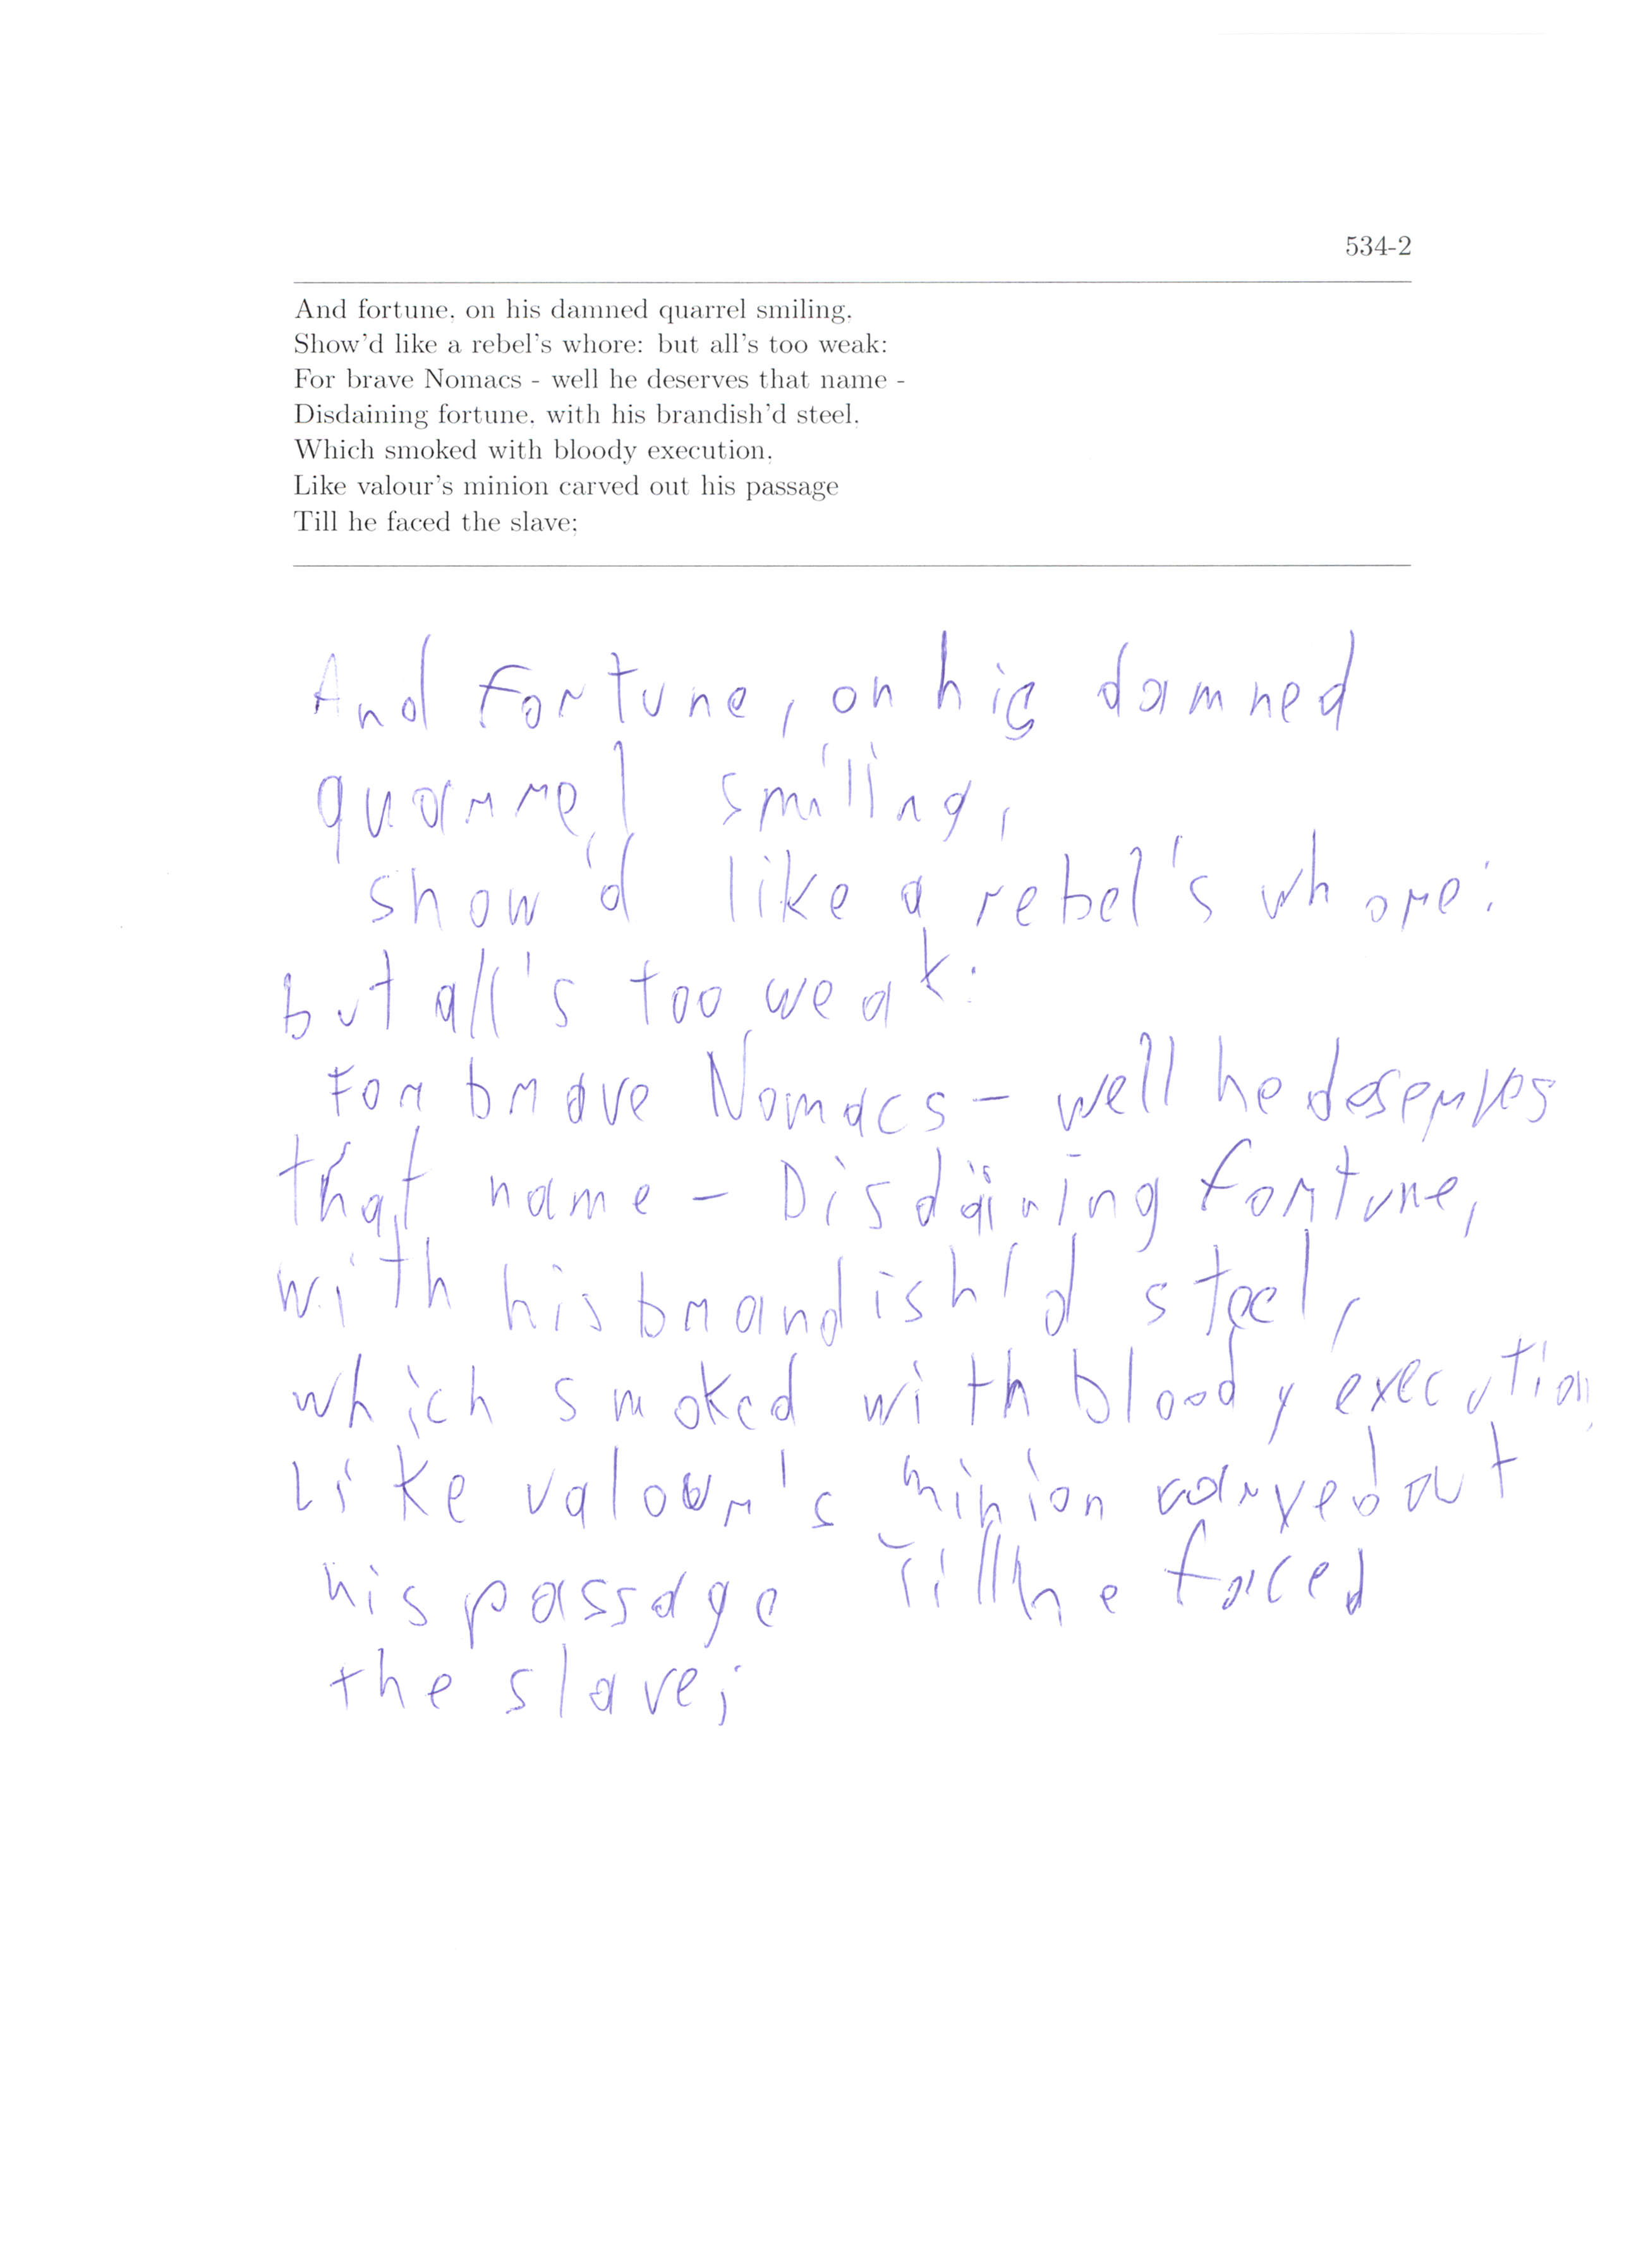 534-2
And fortune, on his damned quarrel smiling,
Show'd like a rebel's whore: but all's too weak:
For brave Nomacs - well he deserves that name -
Disdaining fortune, with his brandish'd steel,
Which smoked with bloody execution,
Like valour's minion carved out his passage
Till he faced the slave;
And fortune, on his damned
quarrel smiling,
show'd like a rebel's whore:
but all's too weak:
For brave Nomacs – well he deserves
that name – Disdaining fortune,
with his brandish'd steel,
which smoked with bloody execution,
Like valour's minion carved out
his passage Till he faced
the slave;